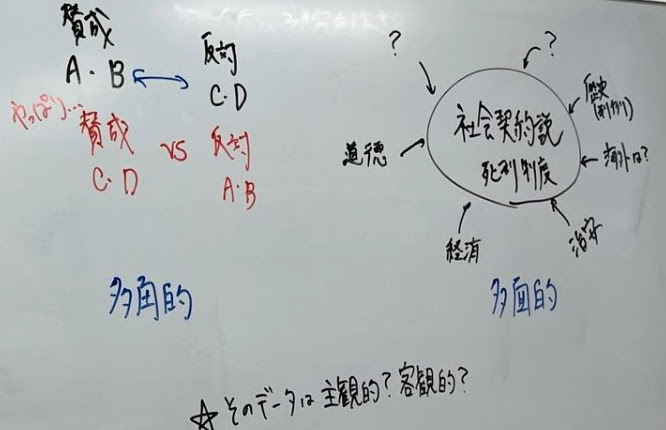 賛成
A・B
反対
C・D
やっぱり…
賛成 vs 反対
C・D
A・B
多角的
?
?
社会契約説
死刑制度
歴史
海外は?
治安
経済
道徳
多面的
☆そのデータは主観的?客観的?